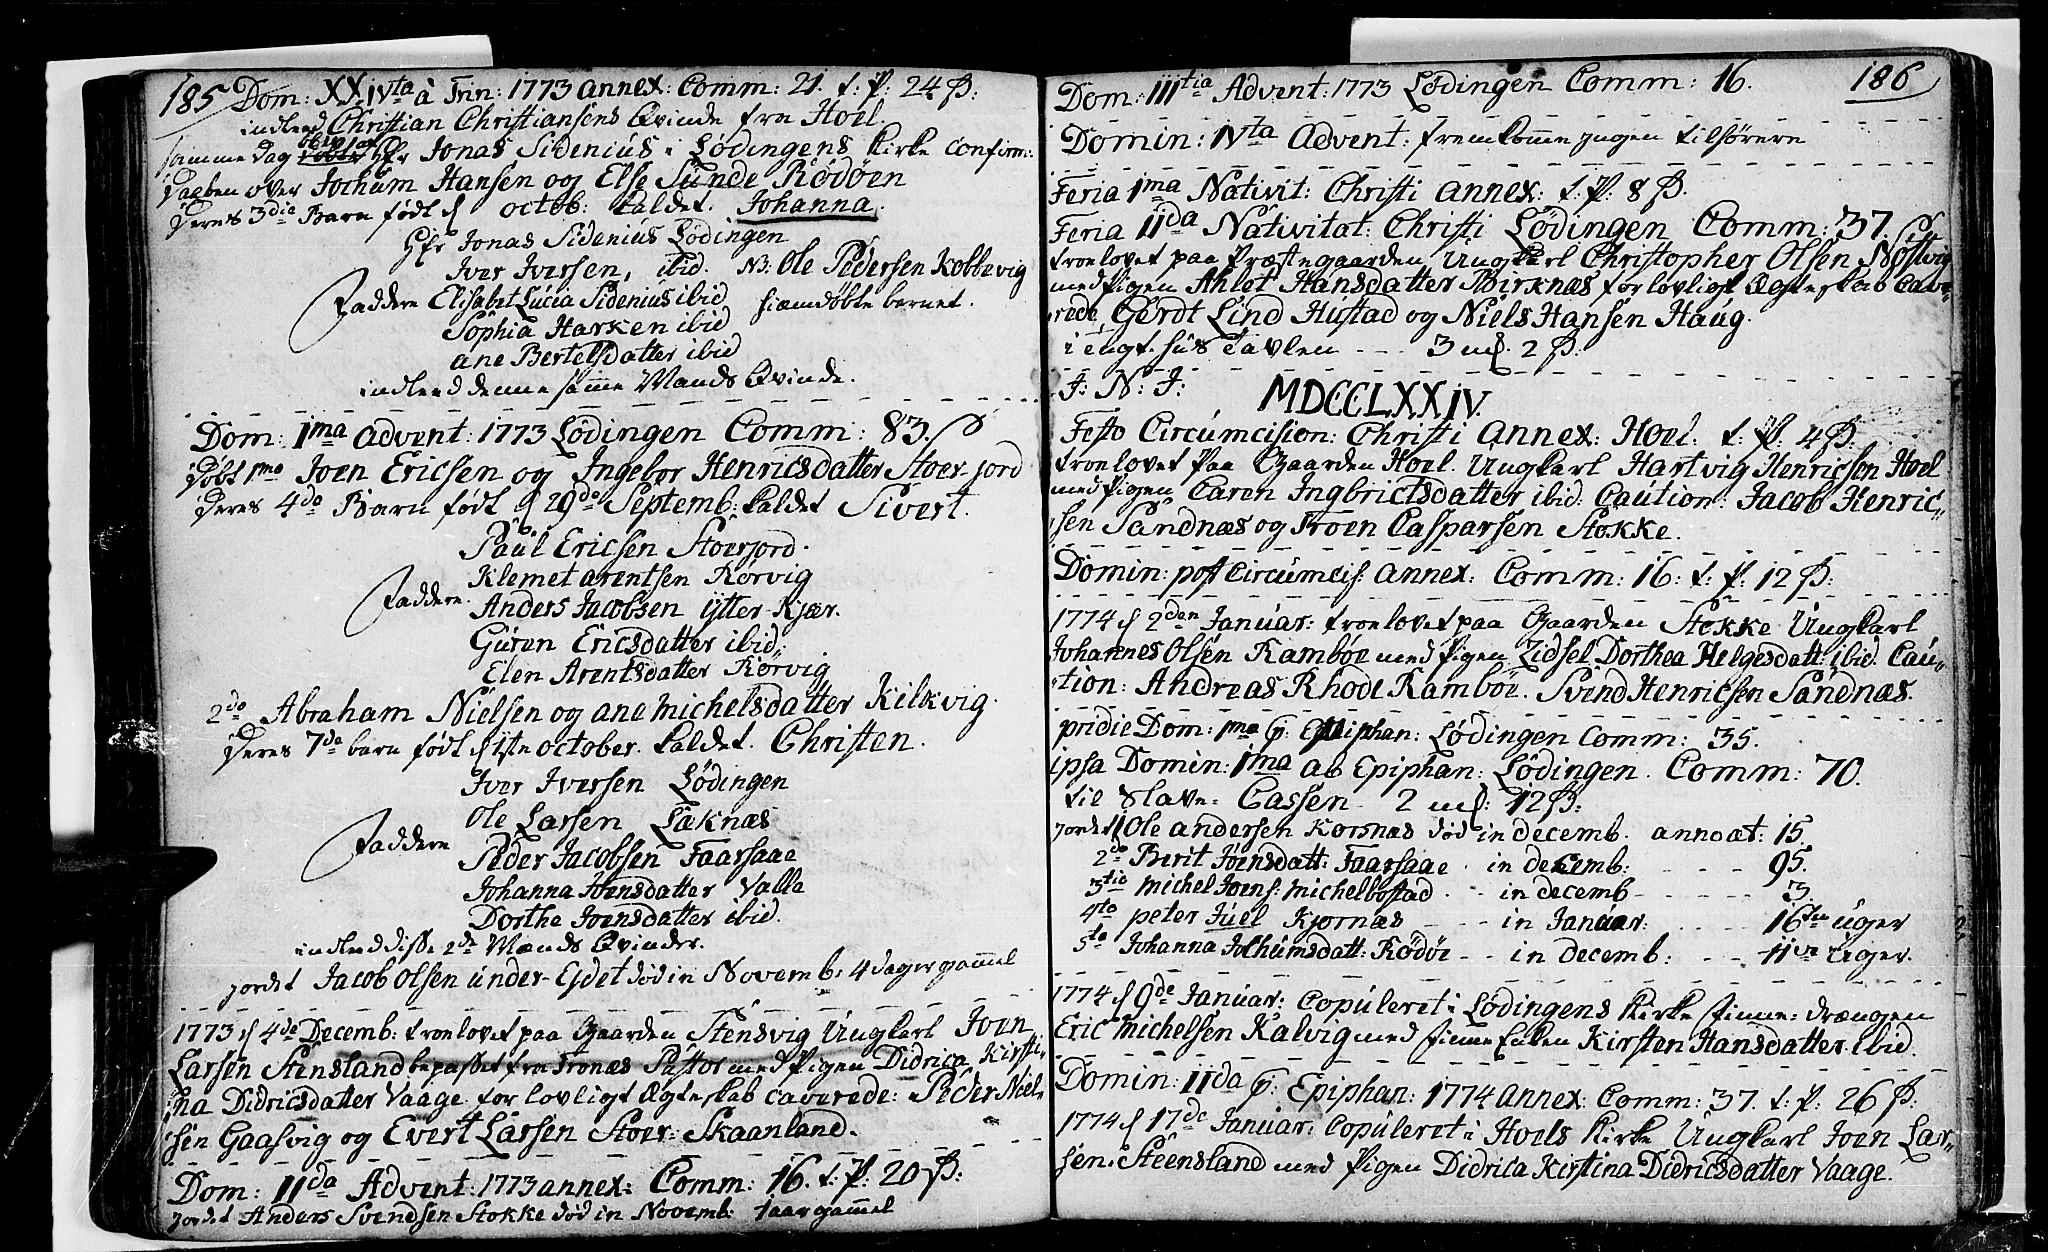 185 Dom: XXIVta à Trin: 1773 annex: Comm: 21. t: P: 24 ß:
indleed Christian Christiansens Qvinde fra Hoel.
samme dag blev af Hr Jonas Sidenius i Lødingens Kirke confirm:
Daaben over Jochum Hansen og Else Sunde Rödöen
Deres 3die Barn født d octob: kaldet Johanna.
Hr Jonas Sidenius Lødingen
Iver Iversen, ibid. NB: Ole Pedersen Kobbevig
Faddere Elisabet Lucia Sidenius ibid hiemdøbte barnet.
Sophia Harken ibid
ane Bertelsdatter ibid
indleed denne samme Mands Qvinde.
Dom: 1ma advent: 1773 Lødingen Comm: 83.
Døbt 1mo Joen Ericsen og Ingebor Henricsdatter Stoerjord
Deres 4de Barn født d 29de Septemb: kaldet Sivert.
Paul Ericsen Stoerjord.
Klemet arentsen Rørvig
Faddere Anders Jacobsen ytter-Kjær.
Guren Ericsdatter ibid:
Elen Arentsdatter Rørvig
2do Abraham Nielsen og ane michelsdatter Kilkvig.
Deres 7de barn født d 1ste october. kaldet. Christen.
Iver Iversen Lödingen
Ole Larsen Läknæs
Faddere Peder Jacobsen Faarsaae
Johanna Joensdatter Valle
Dorthe Joensdatter ibid.
indleed disse 2de Mænds Qvinder.
jordet Jacob Olsen under-Ejdet død in Novemb: 4 dager gammel
1773 d 4de Decemb: troelovet paa Gaarden Stensvig Ungkarl Joen
Larsen Stensland bepasset fra Tronæs Pastor med Pigen Didrica Kirsti-
na Didricsdatter Vaage for lovligt Ægteskab caverede: Peder Niel-
sen Gaasvig og Evert Larsen Stoer: Skaanland.
Dom: IIda Advent: 1773 annex: Comm: 16. t: P: 20 ß:
jordet Anders Svendsen Stokke død in Novemb: 1 aar gammel
Dom: IIItia Advent: 1773 Lødingen Comm: 16. 186
Domin: IVta Advent: fremkomme jngen tilhørere
Feria 1ma Nativit: Christi annex: t: P: 8 ß.
Feria IIda Nativitat: Christi Lødingen Comm: 37.
troelovet paa Præstegaarden Ungkarl Christopher Olsen Nøstvig
med Pigen Ahlet Hansdatter Birknæs for lovligt Ægteskab Cave-
rede, Gerdt Lind Hustad og Niels Hansen Haug.
i tugt-huus tavlen - - - 3 mk. 2 ß:
J: N: J:
MDCCLXXIV.
Festo Circumcision: Christi annex: Hoel. t: P: 4 ß:
troelovet paa Gaarden Hoel. Ungkarl Hartvig Henricsen Hoel
med Pigen Caren Ingbrictsdatter ibid: Caution: Jacob Henric-
sen Sandnæs og Troen Casparsen Stokke.
Domin: post Circumcis: annex: Comm: 16: t: P: 12 ß:
1774 d 2den Januar: troelovet paa Gaarden Stokke Ungkarl
Johannes Olsen Ramböe med Pigen Zidsel Dorthea Helgesdatt: ibid. Cau-
tion: Andreas Rhode Ramböe. Svend Henricsen Sandnæs.
pridie Dom: 1ma p: Epiphan: Lødingen Comm: 35.
ipsa Domin: 1ma ab Epiphan: Lødingen. Comm: 70.
til Slave-Cassen 2 mk: 12 ß:
jordet 1 Ole andersen Korsnæs død in decemb. anno æt: 15.
2do Berit Joensdatt: Faarsaae in decemb: 95.
3tio michel Joens: michelbostad in decemb 3.
4to peter Juel Kjornæs in Januar: 16ten uger
5to Johanna Jochumsdatt: Rödöe in decemb: 11de uger.
1774 d 9de Januar: Copuleret i Lødingens Kirke finne: drængen
Eric Michelsen Kalvig med finne Enken Kirsten Hansdatter ibid.
Domin: IIda p: Epiphan: 1774 annex: Comm: 37. t: P: 26 ß:
1774 d 17de Januar: Copuleret i Hoels Kirke Ungkarl Joen Lar-
sen: Steensland med Pigen Didrica Kirstina Didricsdatter Vaage.